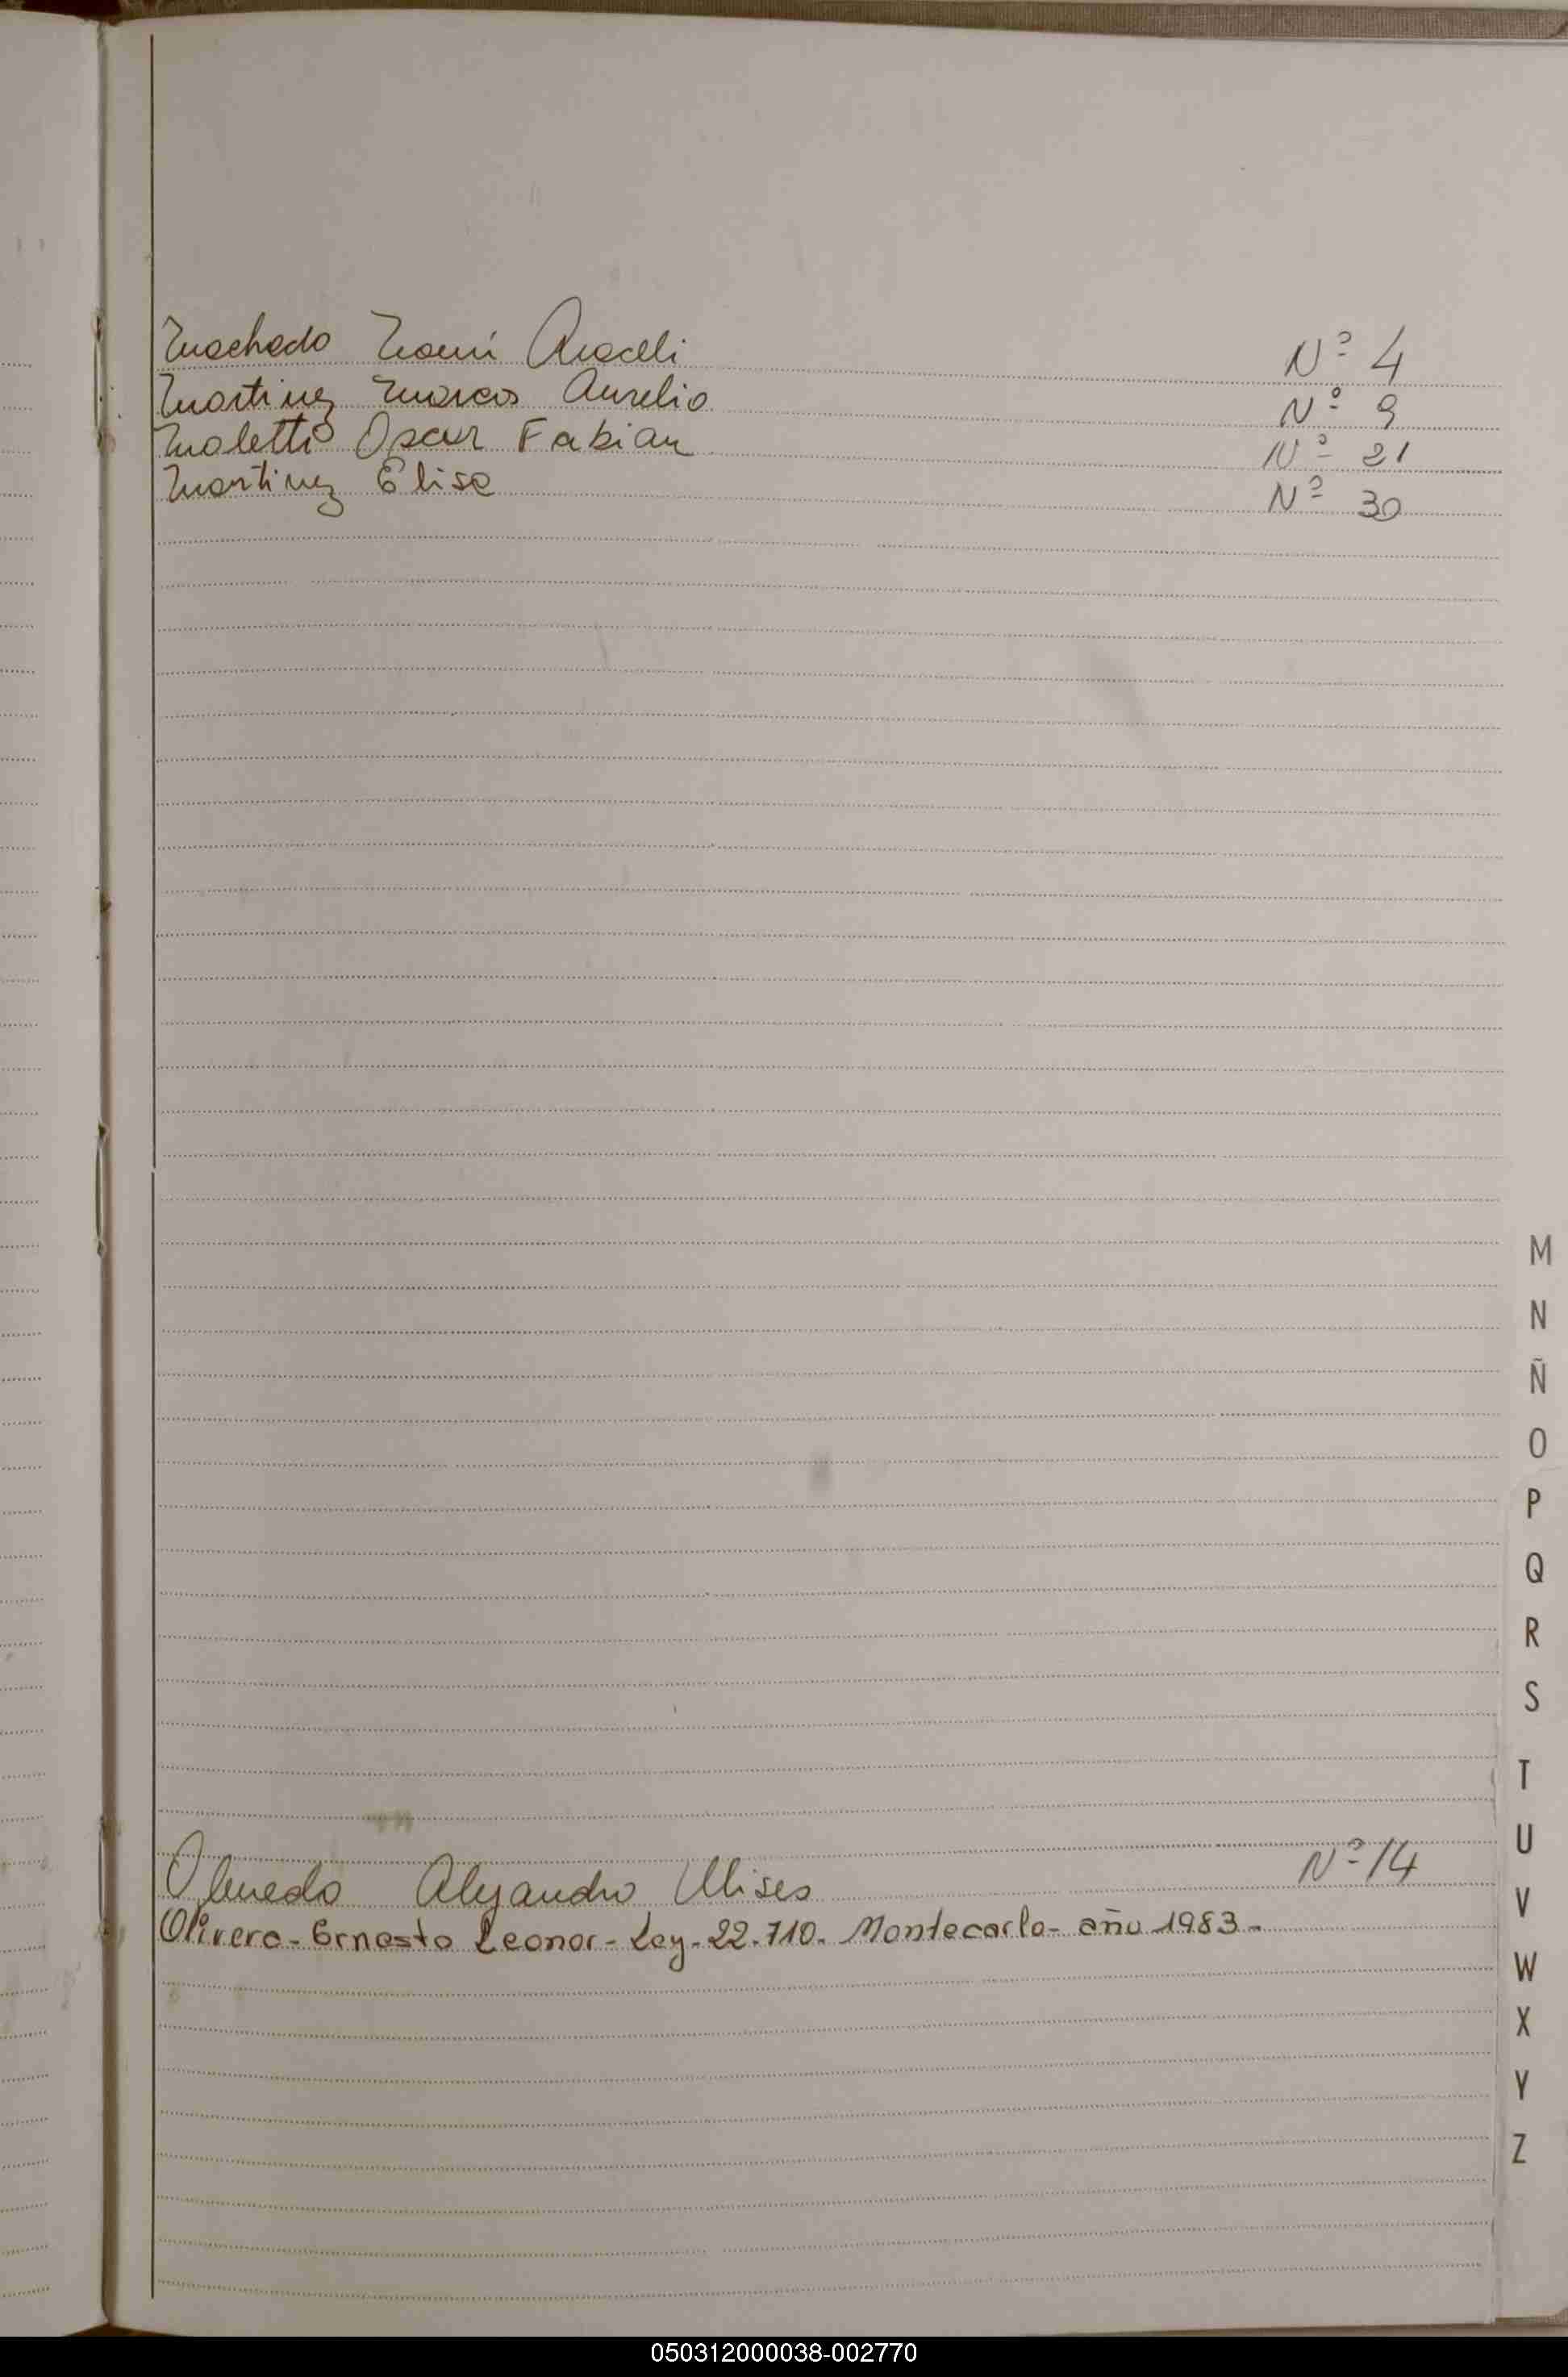 Machado Noemí Araceli Nº 4
Martinez Marcos Aurelio Nº 9
Maletti Oscar Fabian Nº 21
Martinez Elisa Nº 30
M
N
Ñ
O
P
Q
R
S
T
U
Olmedo Alejandro Ulises Nº 14
V
Olivera - Ernesto Leonor - Ley - 22.710. Montecarlo - año 1983 -
W
X
Y
Z
050312000038-002770